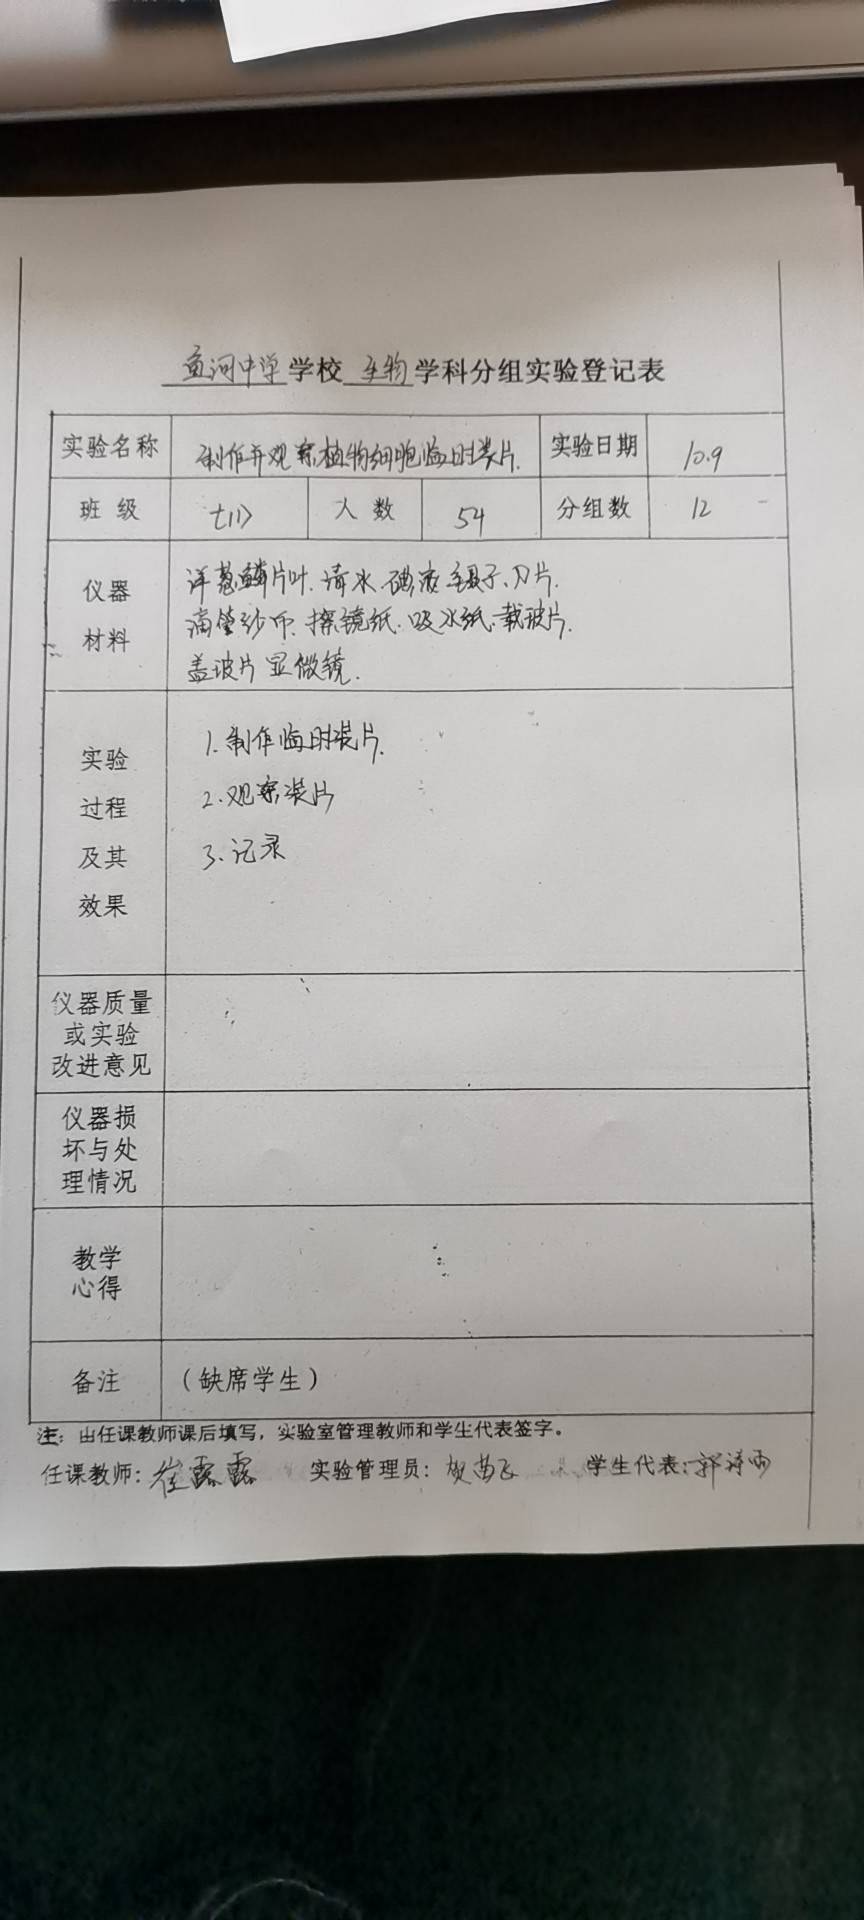 鱼河中学学校生物学科分组实验登记表
实验名称 制作并观察植物细胞临时装片. 实验日期 10.9
班级 七(1) 人数 54 分组数 12
仪器材料
洋葱鳞片叶.清水.碘液.镊子.刀片.
滴管.纱布.擦镜纸.吸水纸.载玻片.
盖玻片 显微镜.
实验过程及其效果
1.制作临时装片.
2.观察装片
3.记录
仪器质量
或实验
改进意见
仪器损
坏与处
理情况
教学
心得
备注 (缺席学生)
注:由任课教师课后填写,实验室管理教师和学生代表签字。
任课教师:崔露露 实验管理员:贺苗飞 学生代表:郭诗雨